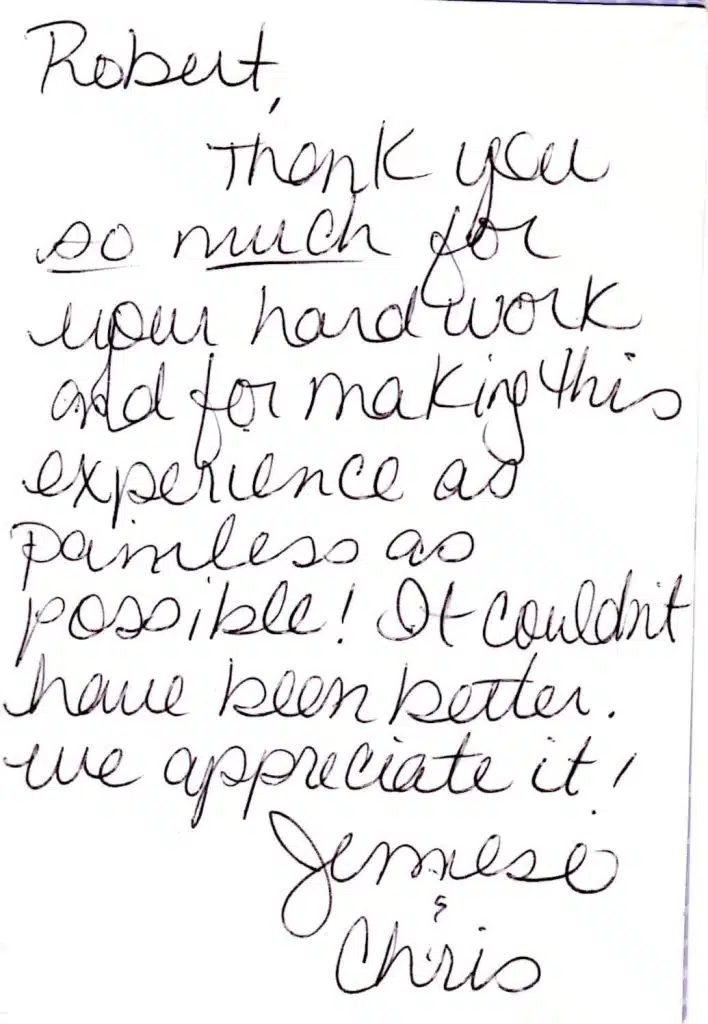 Robert,
Thank you
so much for
your hard work
and for making this
experience as
painless as
possible! It couldn't
have been better.
we appreciate it!
&
Chris